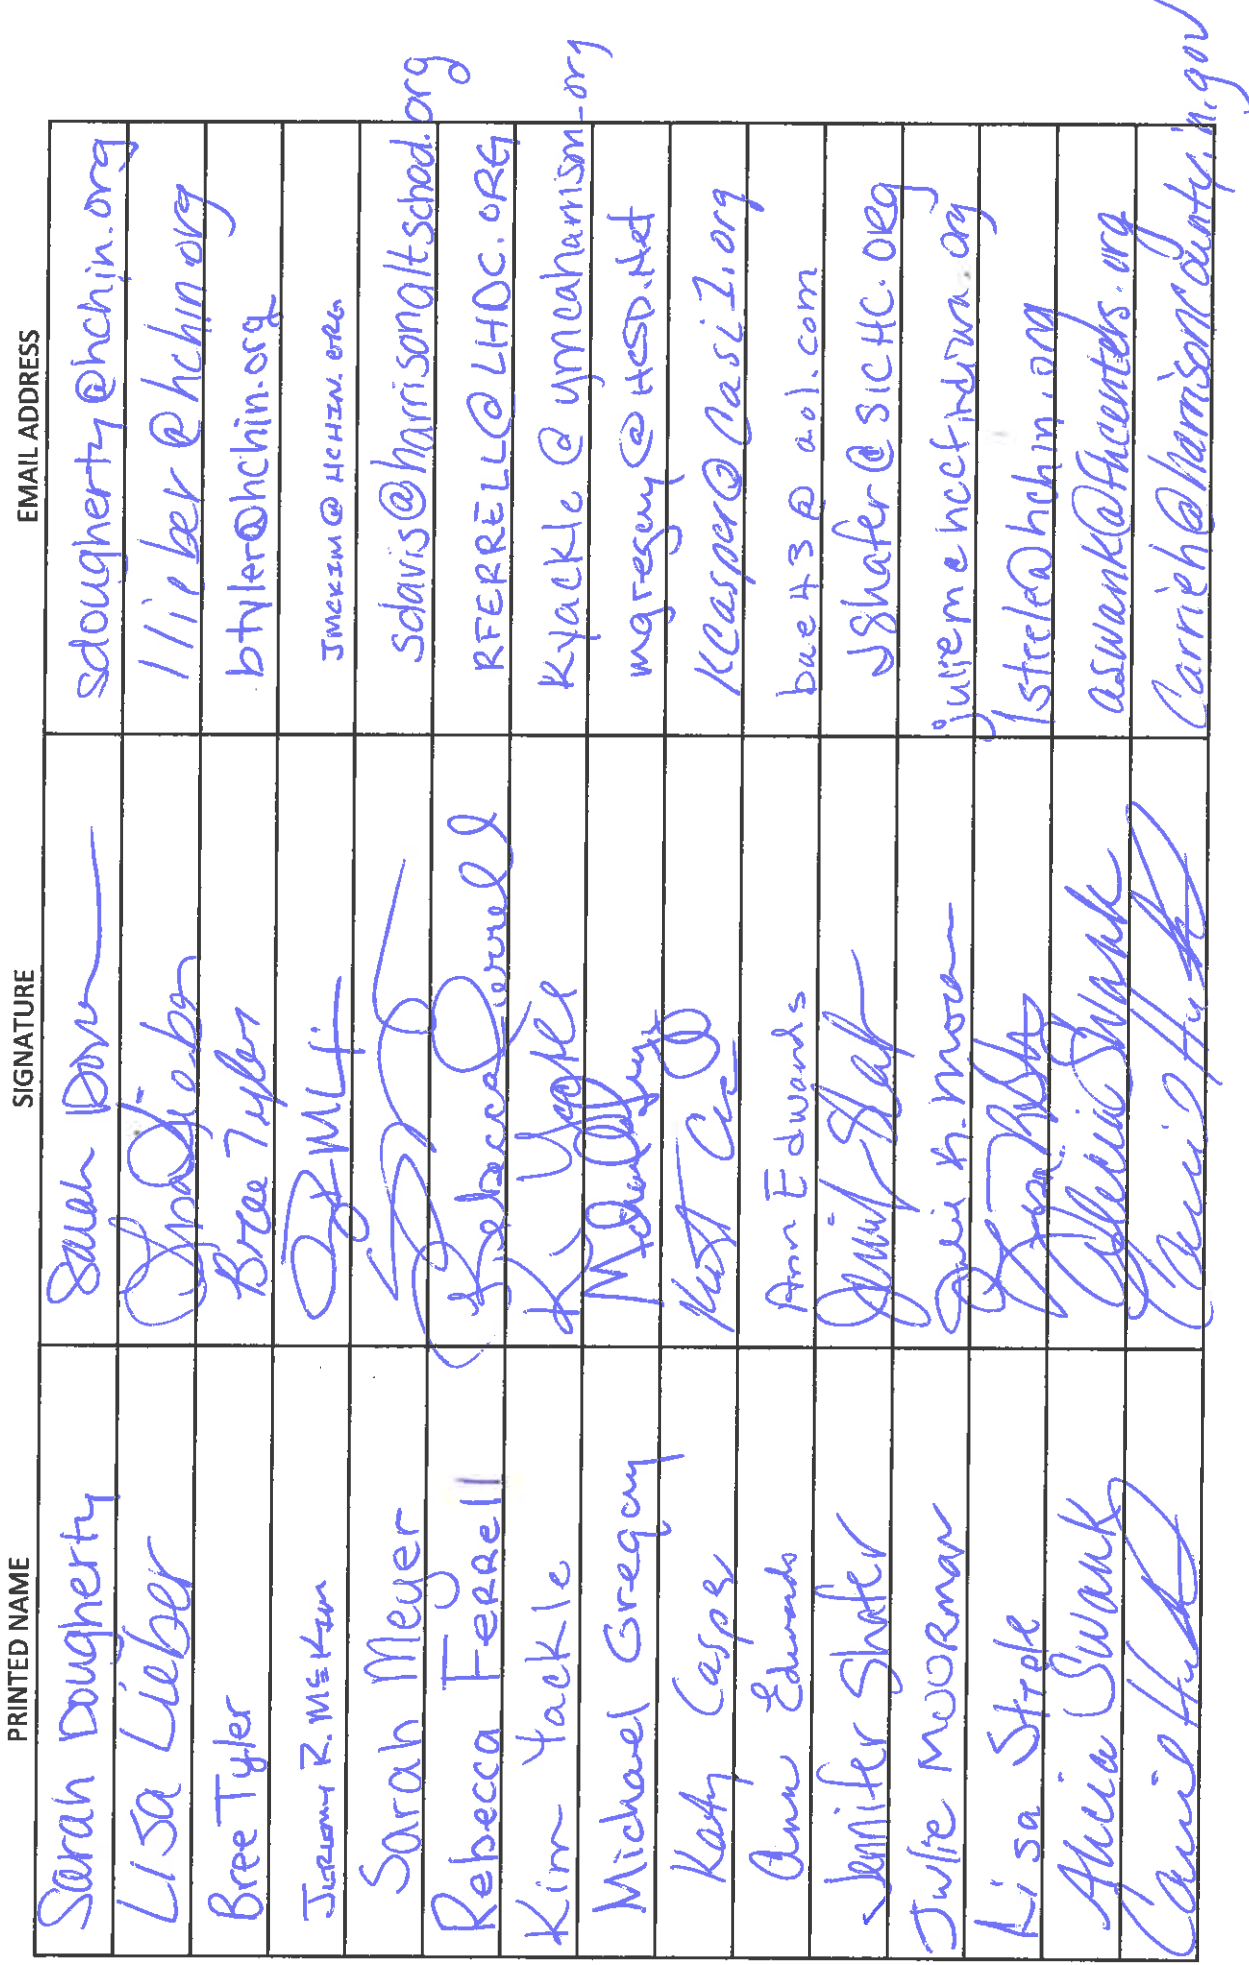 PRINTED NAME SIGNATURE EMAIL ADDRESS
Sarah Dougherty Sarah sdougherty@hchin.org
Lisa Lieber Lisa Lieber llieber@hchin.org
Bree Tyler Bree Tyler btyler@hchin.org
Jeremy R. McKim JMCKIM@HCHIN.ORG
Sarah Meyer sdavis@harrisonaltschool.org
Rebecca Ferrell Rebecca Ferrell RFERRELL@LHDC.ORG
Kim Yackle K. Yackle Kyackle@ymcaharrison.org
Michael Gregory mgregory@HCSD.Net
Katy Casper KCasper@Casi1.org
Ann Edwards Ann Edwards bae43@aol.com
Jennifer Shafer JShafer@SICHC.ORG
Julie Moorman juliem@hccfindiana.org
Lisa Steele lsteele@hchin.org
Alicia Swank Alicia Swank aswank@thcenters.org
Carrieh@harrisoncounty.in.gov